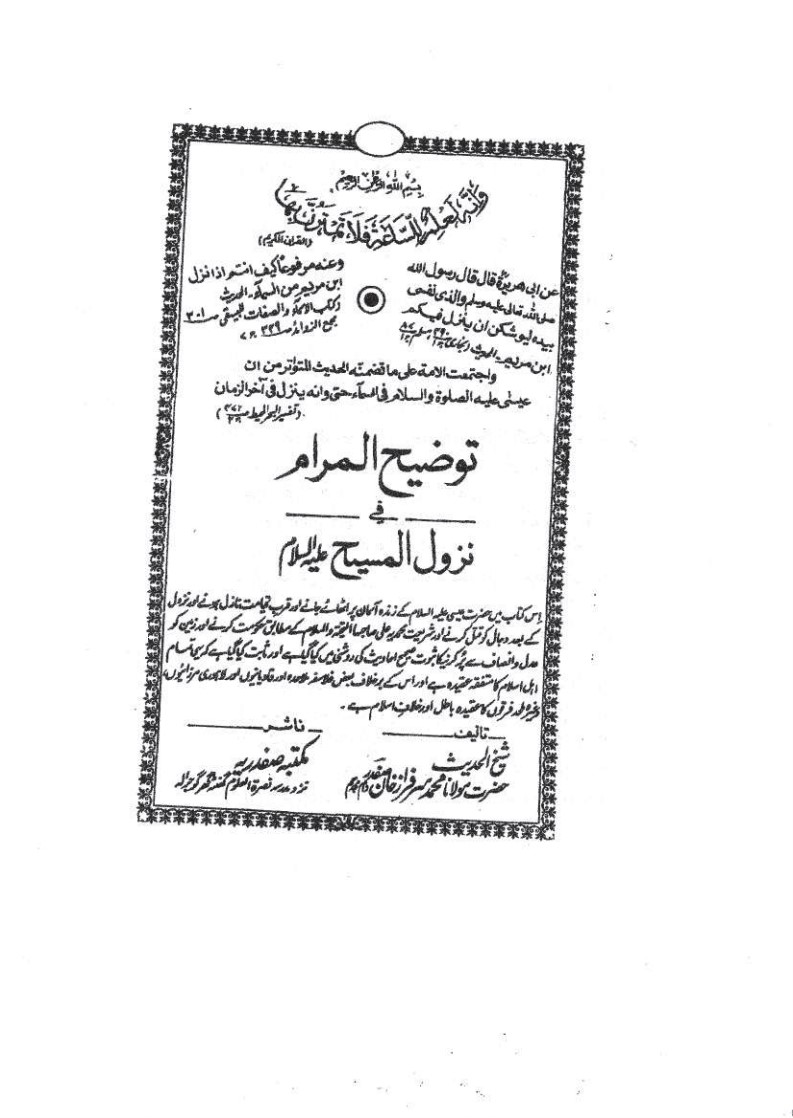 بسم الله الرحمن الرحيم
وَاِنَّهٗ لَعِلْمٌ لِّلسَّاعَةِ فَلَا تَمْتَرُنَّ بِهَا
(القرآن الكريم)
عن ابی هريرة رض قال قال رسول الله
صلی الله تعالی عليه وسلم والذی نفسی
بيده ليوشكن ان ينزل فيكم
ابن مريم ۔ الحديث (بخاری ص ۴۹۰ مسلم ص ۸۷)
وعنه مرفوعاً كيف انتم اذا نزل
ابن مريم من السماء ۔ الحديث
(كتاب الاسماء والصفات للبيهقی ص ۳۰۱
مجمع الزوائد ص ۳۴۹
واجتمعت الامة علی ما تضمنه الحديث المتواتر من ان
عيسٰی عليه الصلوة والسلام فی السماء حتی وانه ينزل فی آخر الزمان
(تفسير البحر المحيط ص ۴۷۳)
توضیح المرام
فی
نزول المسیح علیہ السلام
اِس کتاب میں حضرت عیسی علیہ السلام کے زندہ آسمان پر اٹھائے جانے اور قرب قیامت نازل ہونے اور نزول
کے بعد دجال کو قتل کرنے اور شریعت محمدیہ علی صاحبہا التحیۃ والسلام کے مطابق حکومت کرنے اور زمین کو
عدل و انصاف سے پُر کرنیکا ثبوت صحیح احادیث کی روشنی میں کیا گیا ہے اور ثابت کیا گیا ہے کہ یہی تمام
اہل اسلام کا متفقہ عقیدہ ہے اور اس کے برخلاف بعض فلاسفہ ملاحدہ اور قادیانیوں اور لاہوری مرزائیوں،
وغیرہ ملحد فرقوں کا عقیدہ باطل اور خلاف اسلام ہے ۔
تالیف
شیخ الحدیث
حضرت مولانا محمد سرفراز خان صفدر دام مجدہم
ناشر
مکتبہ صفدریہ
نزد مدرسہ نصرۃ العلوم گھنٹہ گھر گوجرانوالہ